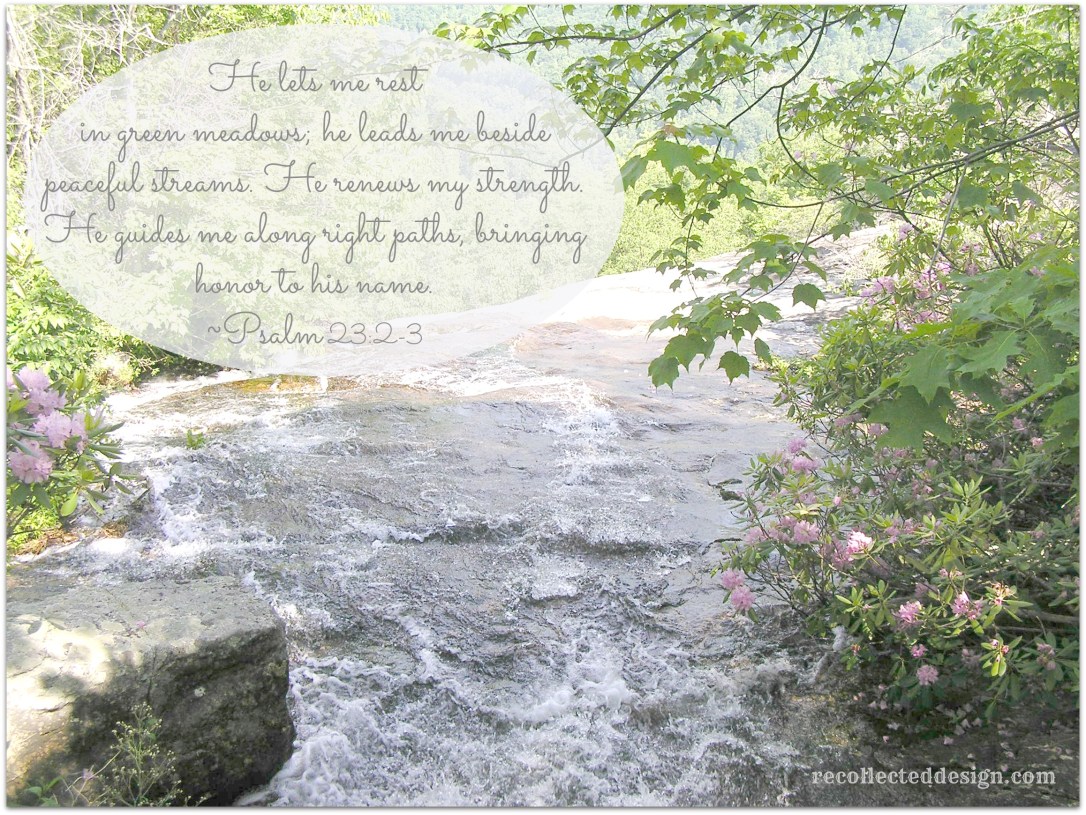 He lets me rest
in green meadows; he leads me beside
peaceful streams. He renews my strength.
He guides me along right paths, bringing
honor to his name.
~Psalm 23:2-3
recollecteddesign.com